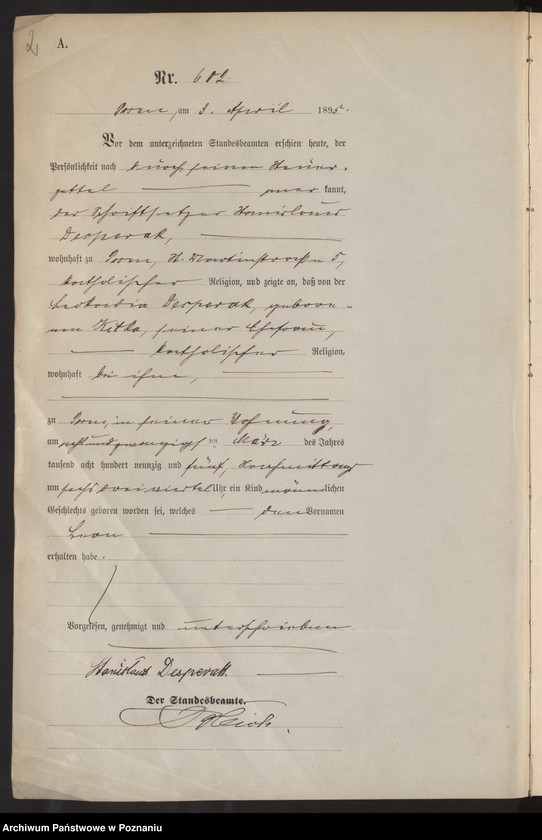 2
A.
Nr. 602.
Posen, am 3. April 1895.
Vor dem unterzeichneten Standesbeamten erschien heute, der
Persönlichkeit nach durch seinen Steuer-
zettel anerkannt,
der Schriftsetzer Stanislaus
Desperak,
wohnhaft zu Posen, St. Martinstraße 5,
katholischer Religion, und zeigte an, daß von der
Leokadia Desperak, gebore-
nen Kitka, seiner Ehefrau,
katholischer Religion,
wohnhaft bei ihm,
zu Posen, in seiner Wohnung,
am acht und zwanzigsten März des Jahres
tausend acht hundert neunzig und fünf, Nachmittags
um sechs drei viertel Uhr ein Kind männlichen
Geschlechts geboren worden sei, welches den Vornamen
Leon
erhalten habe.
Vorgelesen, genehmigt und unterschrieben
Stanislaus Desperak.
Der Standesbeamte.
Archiwum Państwowe w Poznaniu